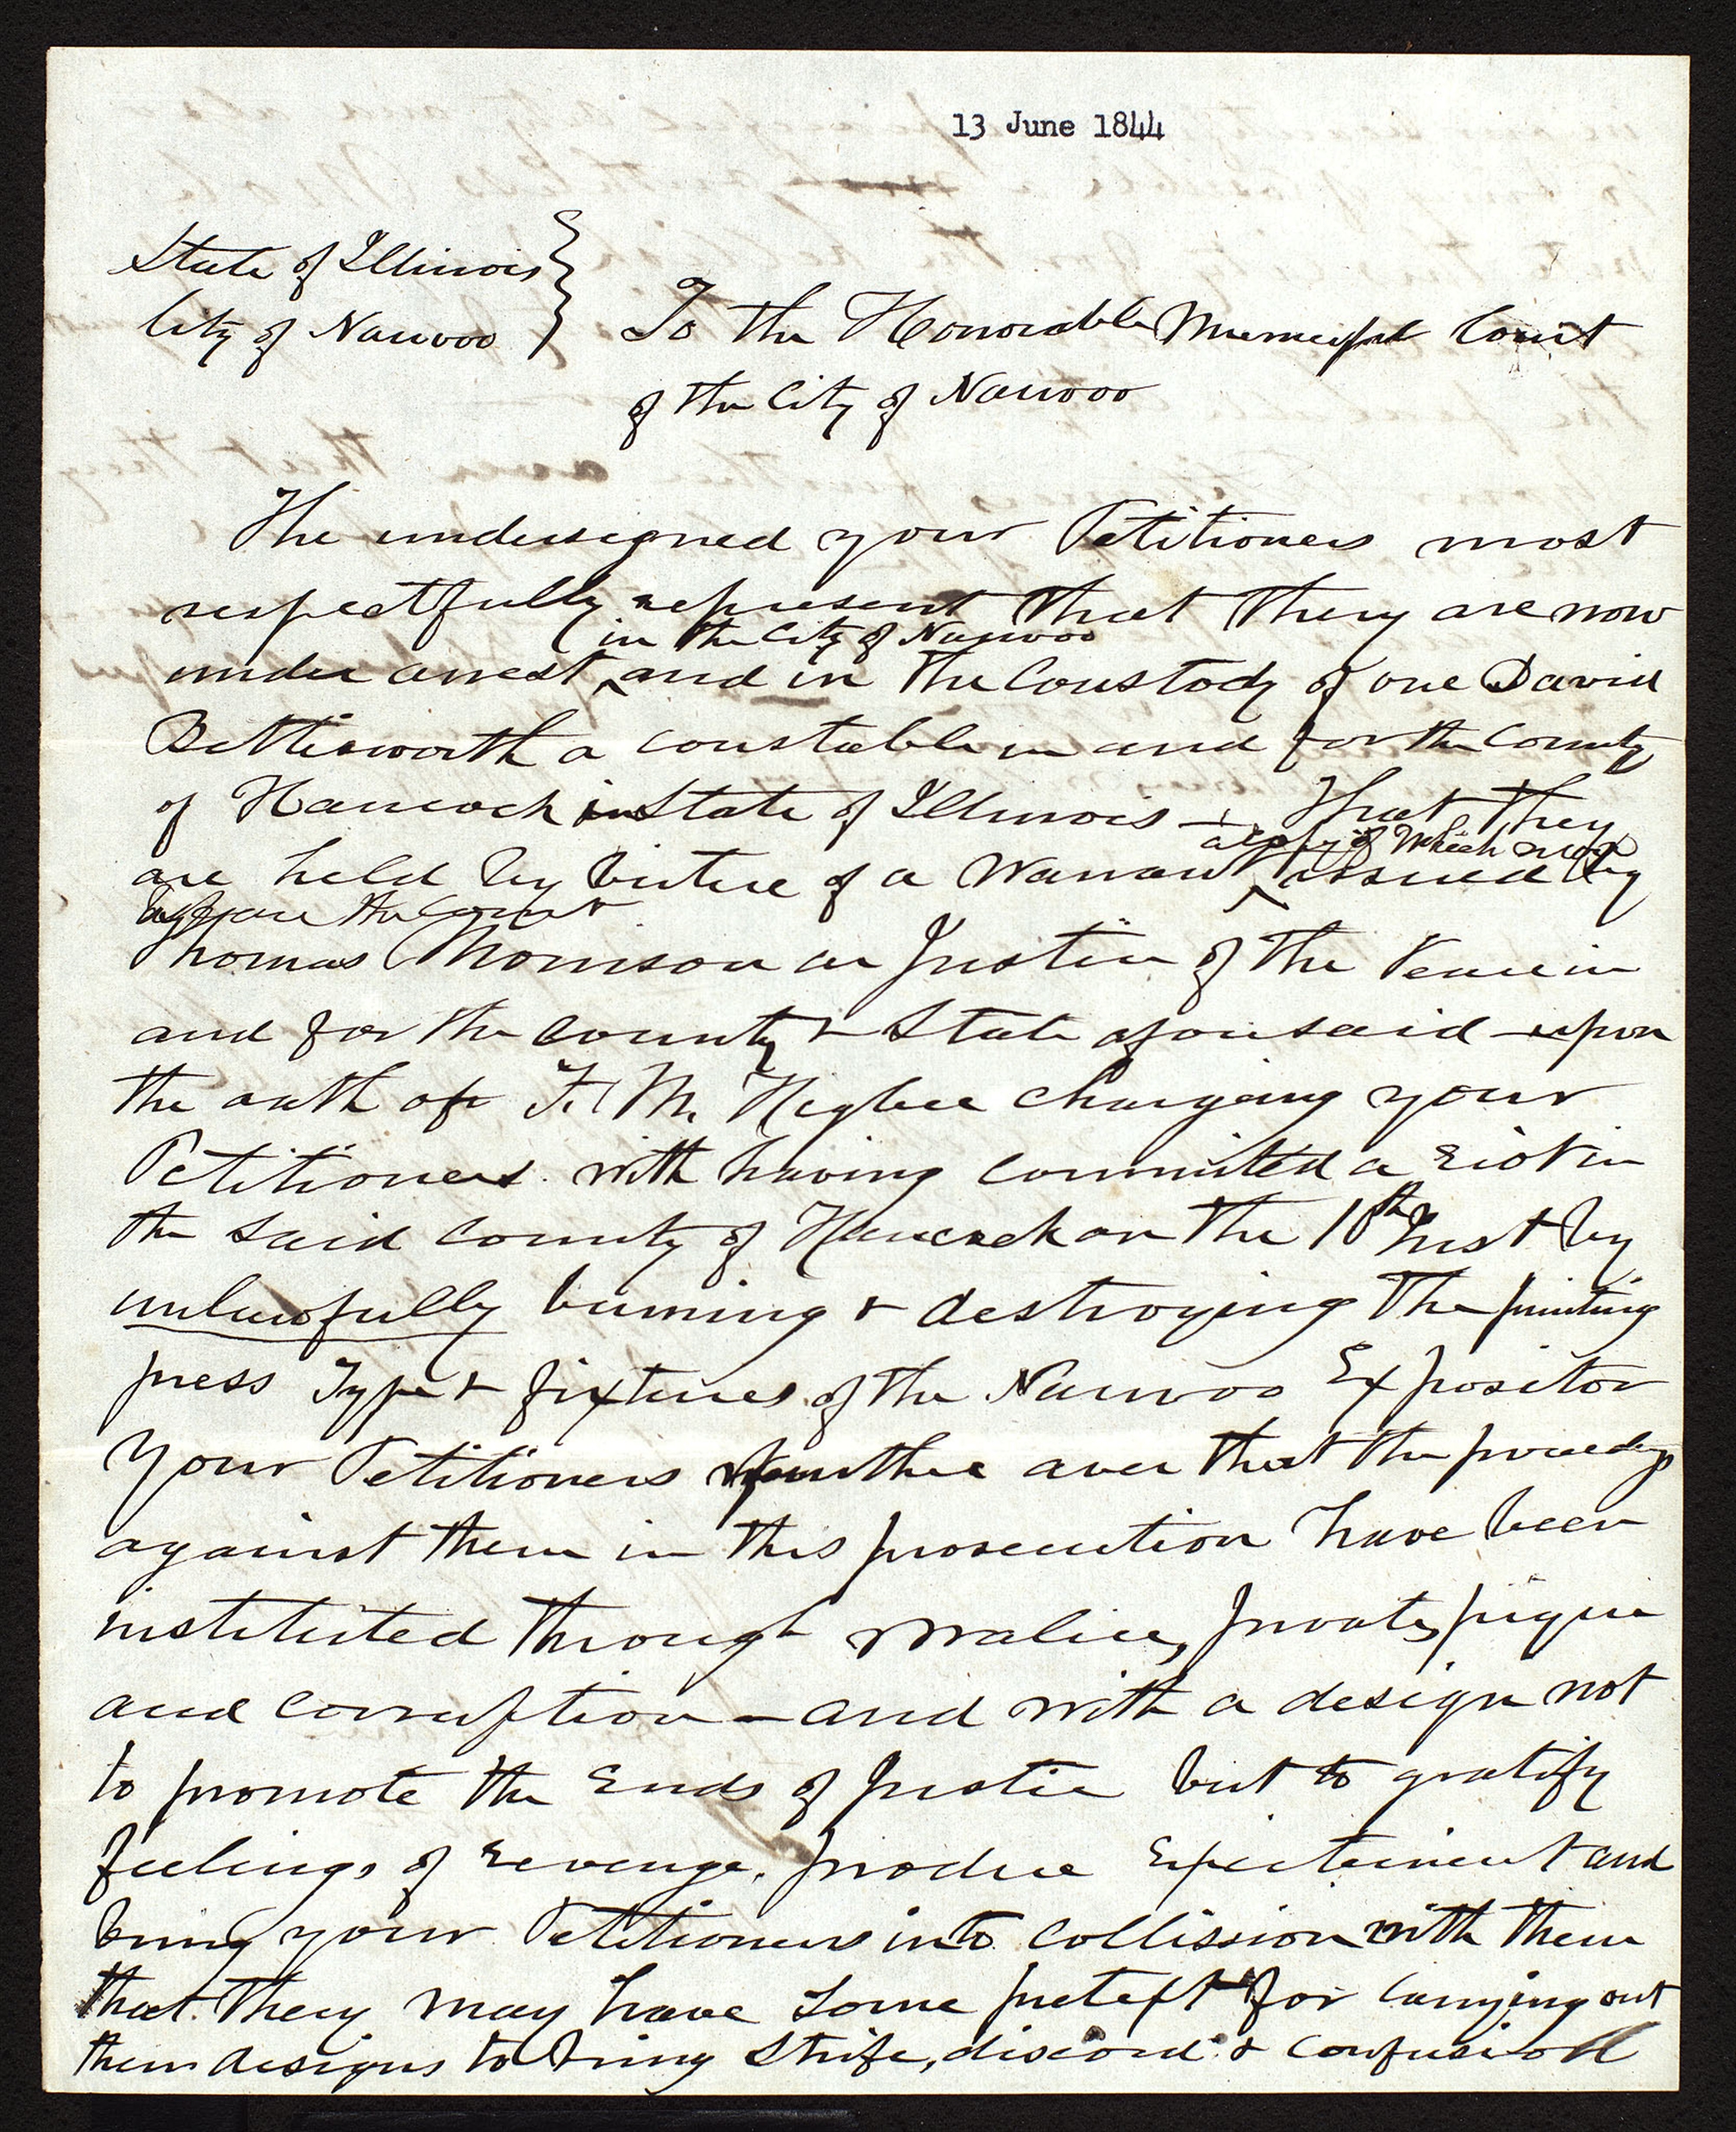 13 June 1844
State of Illinois
City of Nauvoo
To the Honorable Municipal Court
of the City of Nauvoo
The undersigned your Petitioners most
respectfully represent that they are now
in the City of Nauvoo
under arrest, and in the Coustody of one David
Bettisworth a constable in and for the County
of Hancock in State of Illinois — That they
a copy of which is
are held by virtue of a Warrant issued by
before the Court
Thomas Morrison a Justice of the Peace in
and for the County & State aforesaid — upon
the oath of F. M. Higbee charging your
Petitioners with having commited a riot in
the said County of Hancock on the 10th Inst by
unlawfully burning & destroying the printing
press Type & fixtures of the Nauvoo Expositor
Your Petitioners further aver that the proceedgs
against them in this prosecution have been
instituted through malice, private pique
and corruption — and with a design not
to promote the Ends of Justice but to gratify
feelings of revenge, produce Excitement and
bring your Petitioners into Collission with them
that they may have some pretext for carrying out
their designs to bring Strife, discord & confusion